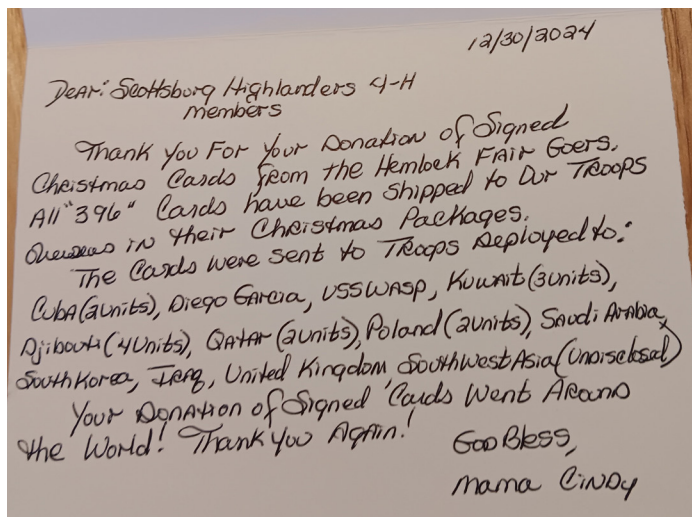 12/30/2024
Dear: Scottsburg Highlanders 4-H
members
Thank you For your Donation of Signed
Christmas Cards from the Hemlock Fair Goers.
All "396" Cards have been shipped to Our Troops
Overseas in their Christmas Packages.
The Cards were sent to Troops Deployed to:
Cuba (2units), Diego Garcia, USS WASP, Kuwait (3units),
Djibouti (4units), Qatar (2units), Poland (2units), Saudi Arabia,
South Korea, Iraq, United Kingdom Southwest Asia (undisclosed)
Your Donation of Signed Cards Went Around
the World! Thank you Again!
God Bless,
Mama Cindy